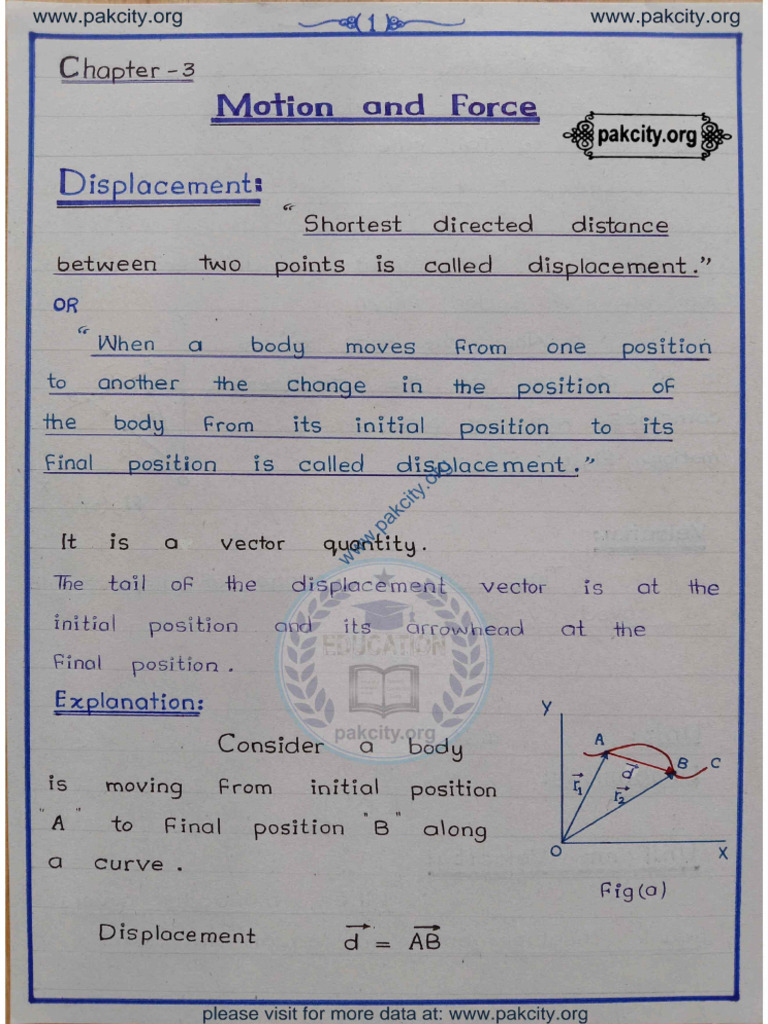 www.pakcity.org
1
www.pakcity.org
Chapter - 3
Motion and Force
pakcity.org
Displacement:
“Shortest directed distance
between two points is called displacement.”
OR
“When a body moves from one position
to another the change in the position of
the body from its initial position to its
final position is called displacement.”
www.pakcity.org
It is a vector quantity.
The tail of the displacement vector is at the
initial position and its arrowhead at the
final position.
EDUCATION
pakcity.org
Explanation:
Consider a body
is moving from initial position
"A" to final position "B" along
a curve.
Y
A
B
C
d⃗
r⃗1
r⃗2
O
X
Fig(a)
Displacement d⃗ = A⃗B⃗
please visit for more data at: www.pakcity.org